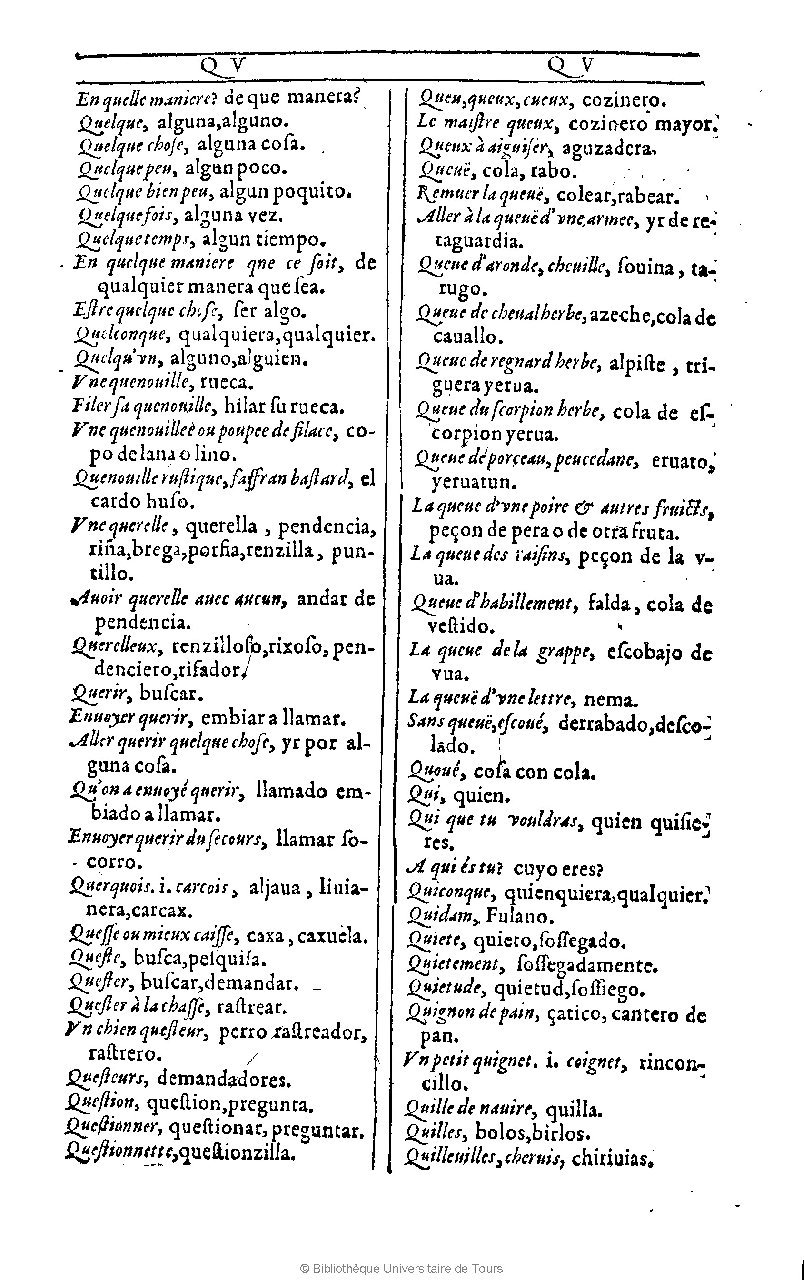 Q V
Q V
En quelle maniere? de que manera?
Quelque, alguna,alguno.
Quelque chose, alguna coſa.
Quelque peu, algun poco.
Quelque bien peu, algun poquito.
Quelquefois, alguna vez.
Quelque temps, algun tiempo.
En quelque maniere que ce ſoit, de
qualquier manera que ſea.
Eſtre quelque choſe, ſer algo.
Quelconque, qualquiera,qualquier.
Quelqu'vn, alguno,alguien.
Vne quenouille, rueca.
Filer ſa quenouille, hilar ſu rueca.
Vne quenouilleè ou poupee de filace, co-
po de lana o lino.
Quenouille ruſtique,ſaffran baſtard, el
cardo huſo.
Vne querelle, querella, pendencia,
riña,brega,porfia,renzilla, pun-
tillo.
Auoir querelle auec aucun, andar de
pendencia.
Querelleux, renzilloſo,rixoſo, pen-
denciero,rifador.
Querir, buſcar.
Enuoyer querir, embiar a llamar.
Aller querir quelque choſe, yr por al-
guna coſa.
Qu'on a enuoyé querir, llamado em-
biado a llamar.
Enuoyer querir du ſecours, llamar ſo-
corro.
Querquois. i. carcois, aljaua, liuia-
nera,carcax.
Queſſe ou mieux caiſſe, caxa, caxuela.
Queſte, buſca,peſquiſa.
Queſter, buſcar,demandar.
Queſter à la chaſſe, raſtrear.
Vn chien queſteur, perro raſtreador,
raſtrero.
Queſteurs, demandadores.
Queſtion, queſtion,pregunta.
Queſtionner, queſtionar, preguntar.
Queſtionnette,queſtionzilla.
Queu,queux,cueux, cozinero.
Le maiſtre queux, cozinero mayor.
Queux à aiguiſer, aguzadera.
Queuë, cola, rabo.
Remuer la queuë, colear,rabear.
Aller à la queuë d'vne armee, yr de re-
taguardia.
Queue d'aronde, cheuille, ſouina, ta-
rugo.
Queue de cheual herbe, azeche,cola de
cauallo.
Queue de regnard herbe, alpiſte, tri-
guera yerua.
Queue du ſcorpion herbe, cola de eſ-
corpion yerua.
Queue de porçeau, peucedane, eruato,
yeruatun.
La queue d'vne poire & autres fruicts,
peçon de pera o de otra fruta.
La queue des raiſins, peçon de la v-
ua.
Queue d'habillement, falda, cola de
veſtido.
La queue de la grappe, eſcobajo de
vua.
La queuë d'vne lettre, nema.
Sans queuë,eſcoué, derrabado,deſco-
lado.
Quoué, coſa con cola.
Qui, quien.
Qui que tu vouldras, quien quiſie-
res.
A qui és tu? cuyo eres?
Quiconque, quienquiera,qualquier.
Quidam, Fulano.
Quiete, quieto,ſoſſegado.
Quietement, ſoſſegadamente.
Quietude, quietud,ſoſſiego.
Quignon de pain, çatico, cantero de
pan.
Vn petit quignet. i. coignet, rincon-
cillo.
Quille de nauire, quilla.
Quilles, bolos,birlos.
Quilleuilles, cheruis, chiriuias.
© Bibliothèque Universitaire de Tours